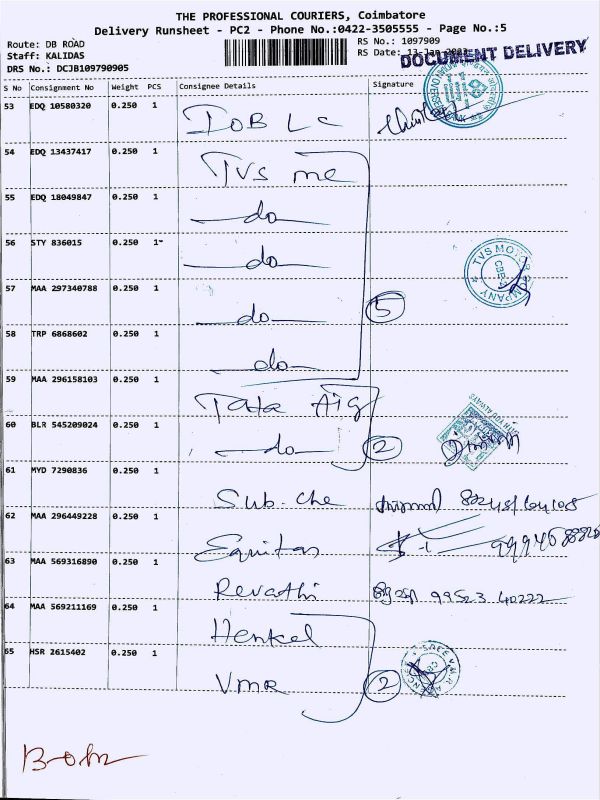 THE PROFESSIONAL COURIERS, Coimbatore
Delivery Runsheet - PC2 - Phone No.:0422-3505555 - Page No.:5
Route: DB ROAD
RS No.: 1097909
Staff: KALIDAS
RS Date: 13-Jan-2023
DOCUMENT DELIVERY
DRS No.: DCJB109790905
S No Consignment No Weight PCS Consignee Details Signature
53 EDQ 10580320 0.250 1
54 EDQ 13437417 0.250 1 TVS me
55 EDQ 18049847 0.250 1 do
56 STY 836015 0.250 1 do
TVS MOTOR COMPANY
57 MAA 297340788 0.250 1 do 5
58 TRP 6868602 0.250 1 do
59 MAA 296158103 0.250 1 Tata Aig
60 BLR 545209024 0.250 1 do 2
61 MYD 7290836 0.250 1 Sub. che
62 MAA 296449228 0.250 1 Equitas
63 MAA 569316890 0.250 1 Revathi 99523 40222
64 MAA 569211169 0.250 1 Henkel
65 HSR 2615402 0.250 1 VMR 2